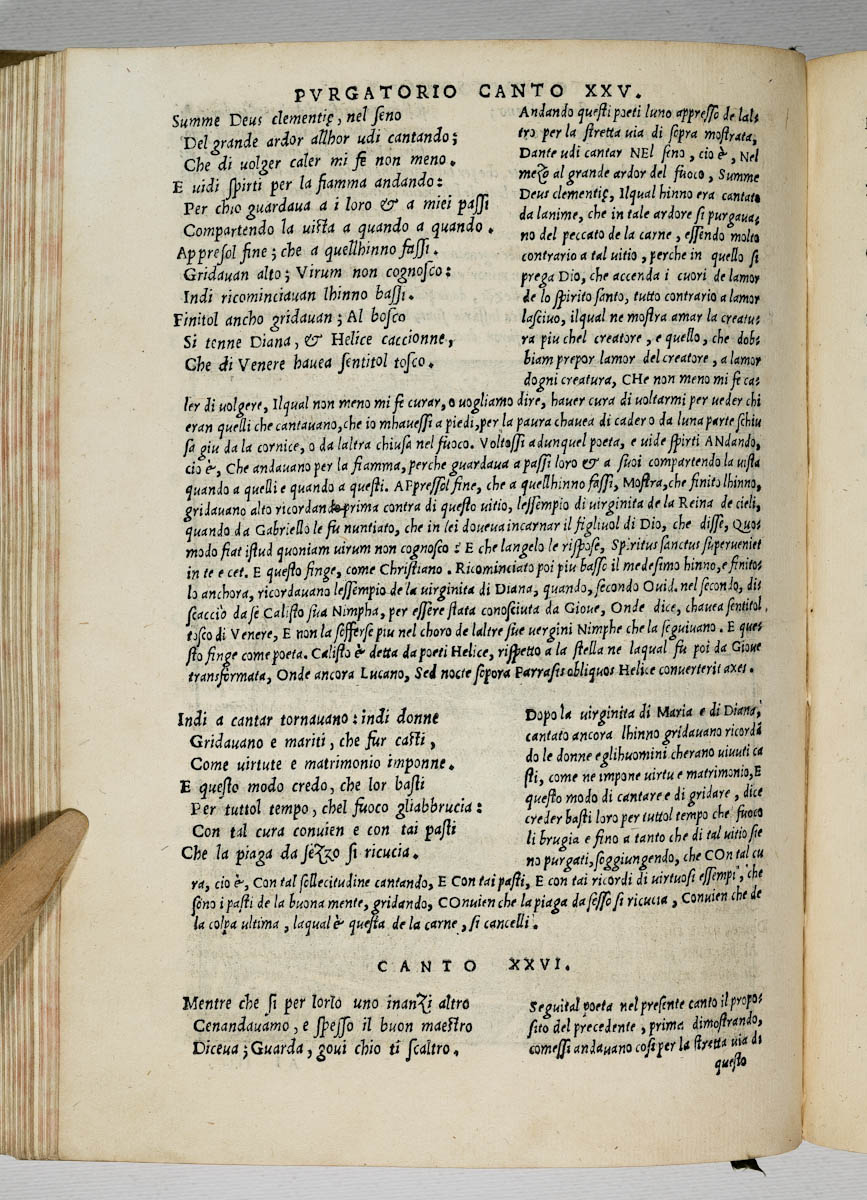 PVRGATORIO CANTO XXV.
Summe Deus clementię, nel ſeno
Del grande ardor allhor udi cantando;
Che di uolger caler mi fe non meno.
E uidi ſpirti per la fiamma andando:
Per chio guardaua a i loro & a miei paſſi
Compartendo la uiſta a quando a quando.
Appreſol fine; che a quellhinno faſſi.
Gridauan alto; Virum non cognoſco:
Indi ricominciauan lhinno baſſi.
Finitol ancho gridauan; Al boſco
Si tenne Diana, & Helice caccionne,
Che di Venere hauea ſentitol toſco.
Andando queſti poeti luno appreſſo de lal⸗
tro per la ſtretta uia di ſopra moſtrata,
Dante udi cantar NEl ſeno, cio è, Nel
mezo al grande ardor del fuoco, Summe
Deus clementię, Ilqual hinno era cantato
da lanime, che in tale ardore ſi purgaua⸗
no del peccato de la carne, eſſendo molto
contrario a tal uitio, perche in quello ſi
prega Dio, che accenda i cuori de lamor
de lo ſpirito ſanto, tutto contrario a lamor
laſciuo, ilqual ne moſtra amar la creatu⸗
ra piu chel creatore, e quello, che dob⸗
biam prepor lamor del creatore, a lamor
dogni creatura, CHe non meno mi fe ca⸗
ler di uolgere, Ilqual non meno mi fe curar, o uogliamo dire, hauer cura di uoltarmi per ueder chi
eran quelli che cantauano, che io mhaueſſi a piedi, per la paura chauea di cader o da luna parte ſchiu
ſa giu da la cornice, o da laltra chiuſa nel fuoco. Voltoſſi adunquel poeta, e uide ſpirti ANdando,
cio è, Che andauano per la fiamma, perche guardaua a paſſi loro & a ſuoi compartendo la uiſta
quando a quelli e quando a queſti. APpreſſol fine, che a quellhinno faſſi, Moſtra, che finito lhinno,
gridauano alto ricordando prima contra di queſto uitio, leſſempio di uirginita de la Reina de cieli,
quando da Gabriello le fu nuntiato, che in lei doueua incarnar il figliuol di Dio, che diſſe, Quo⸗
modo fiat iſtud quoniam uirum non cognoſco: E che langelo le riſpoſe, Spiritus ſanctus ſuperueniet
in te e cet. E queſto finge, come Chriſtiano. Ricominciato poi piu baſſo il medeſimo hinno, e finito⸗
lo anchora, ricordauano leſſempio de la uirginita di Diana, quando, ſecondo Ouid. nel ſecondo, di⸗
ſcacciò da ſe Caliſto ſua Nimpha, per eſſere ſtata conoſciuta da Gioue, Onde dice, chauea ſentitol
toſco di Venere, E non la ſofferſe piu nel choro de laltre ſue uergini Nimphe che la ſeguiuano. E que⸗
ſto finge come poeta. Caliſto è detta da poeti Helice, riſpetto a la ſtella ne laqual fu poi da Gioue
transformata, Onde ancora Lucano, Sed nocte ſopora Parraſis obliquos Helice conuerterit axes.
Indi a cantar tornauano: indi donne
Gridauano e mariti, che fur caſti,
Come uirtute e matrimonio imponne.
E queſto modo credo, che lor baſti
Per tuttol tempo, chel fuoco gliabbrucia:
Con tal cura conuien e con tai paſti
Che la piaga da ſezzo ſi ricucia.
Dopo la uirginita di Maria e di Diana,
cantato ancora lhinno gridauano ricordã
do le donne e glihuomini cherano uiuuti ca
ſti, come ne impone uirtu e matrimonio, E
queſto modo di cantare e di gridare, dice
creder baſti loro per tuttol tempo che fuoco
li brugia e fino a tanto che di tal uitio ſie
no purgati, ſoggiungendo, che COn tal cu
ra, cio è, Con tal ſollecitudine cantando, E Con tai paſti, E con tai ricordi di uirtuoſi eſſempi, che
ſono i paſti de la buona mente, gridando, COnuien che la piaga da ſeſſo ſi ricucia, Conuien che de
la colpa ultima, laqual è queſta de la carne, ſi cancelli.
CANTO XXVI.
Mentre che ſi per lorlo uno inanzi altro
Cenandauamo, e ſpeſſo il buon maeſtro
Diceua; Guarda, goui chio ti ſcaltro.
Seguital poeta nel preſente canto il propo⸗
ſito del precedente, prima dimoſtrando,
comeſſi andauano coſi per la ſtretta uia di
queſto